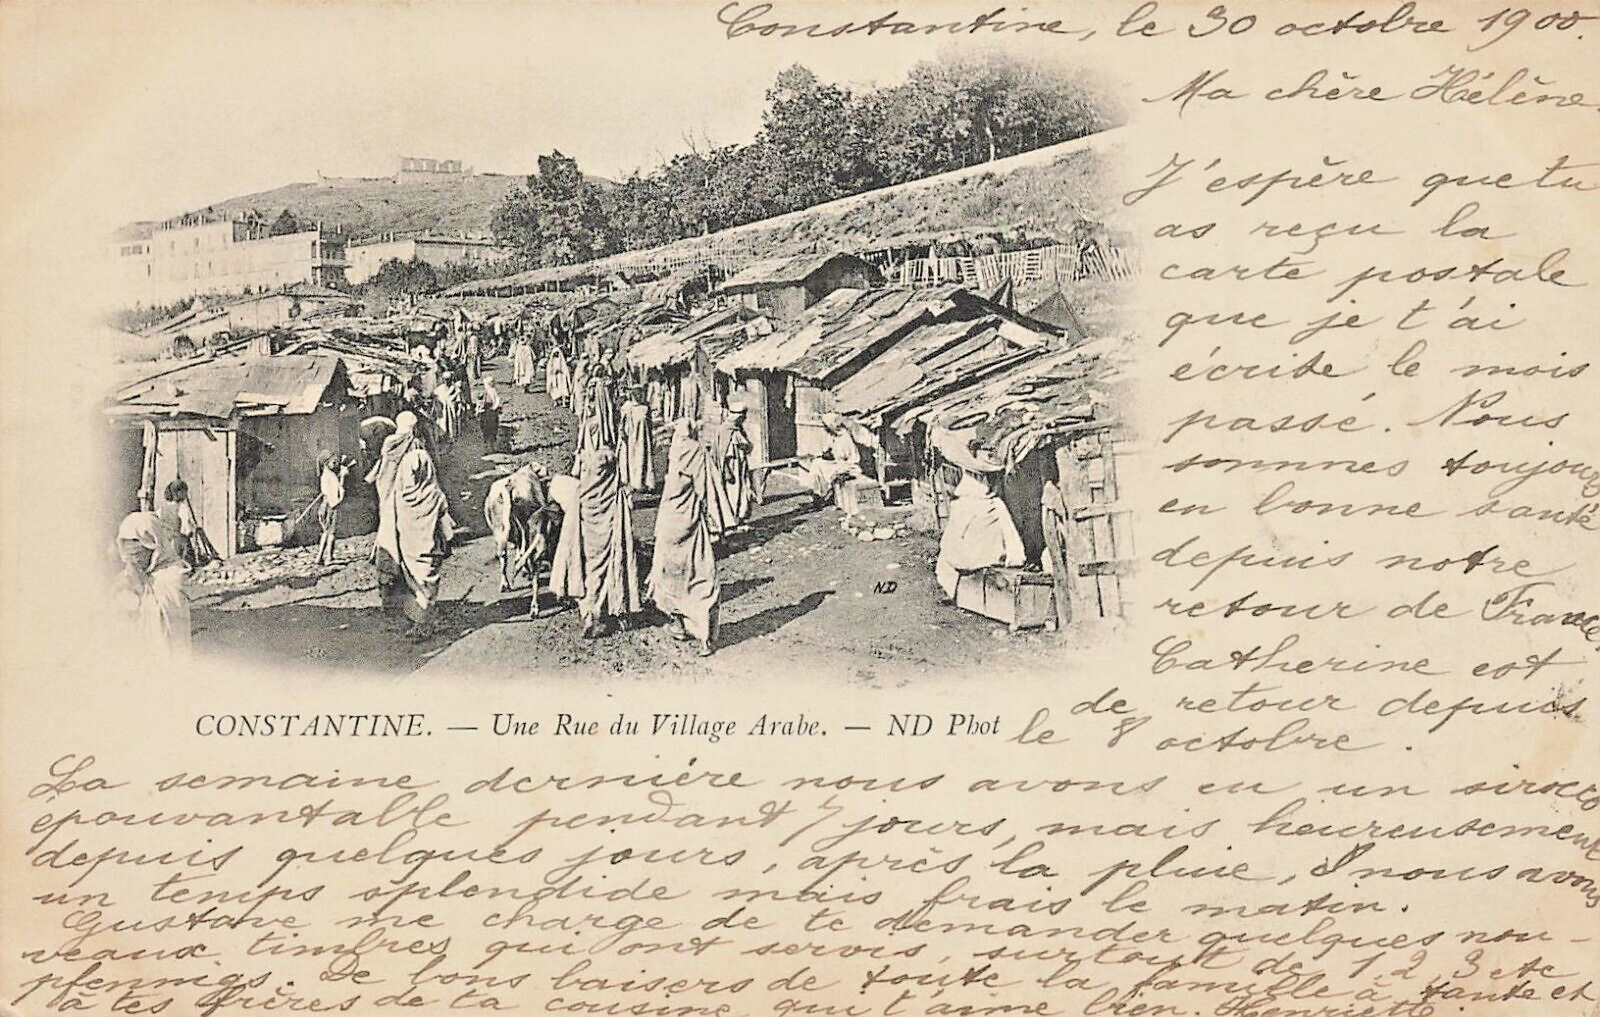 Constantine, le 30 octobre 1900.
Ma chère Hélène.
J'espère que tu
as reçu la
carte postale
que je t'ai
écrite le mois
passé. Nous
sommes toujours
en bonne santé
depuis notre
retour de France,
Catherine est
de retour depuis
le 8 octobre.
ND
CONSTANTINE. — Une Rue du Village Arabe. — ND Phot
La semaine dernière nous avons eu un sirocco
épouvantable pendant 7 jours, mais heureusement
depuis quelques jours, après la pluie, nous avons
un temps splendide mais frais le matin.
Gustave me charge de te demander quelques nou-
veaux timbres qui ont servis, surtout de 1, 2, 3 etc
pfennigs. De bons baisers de toute la famille à tante et
à tes frères de ta cousine qui t'aime bien. Henriette.